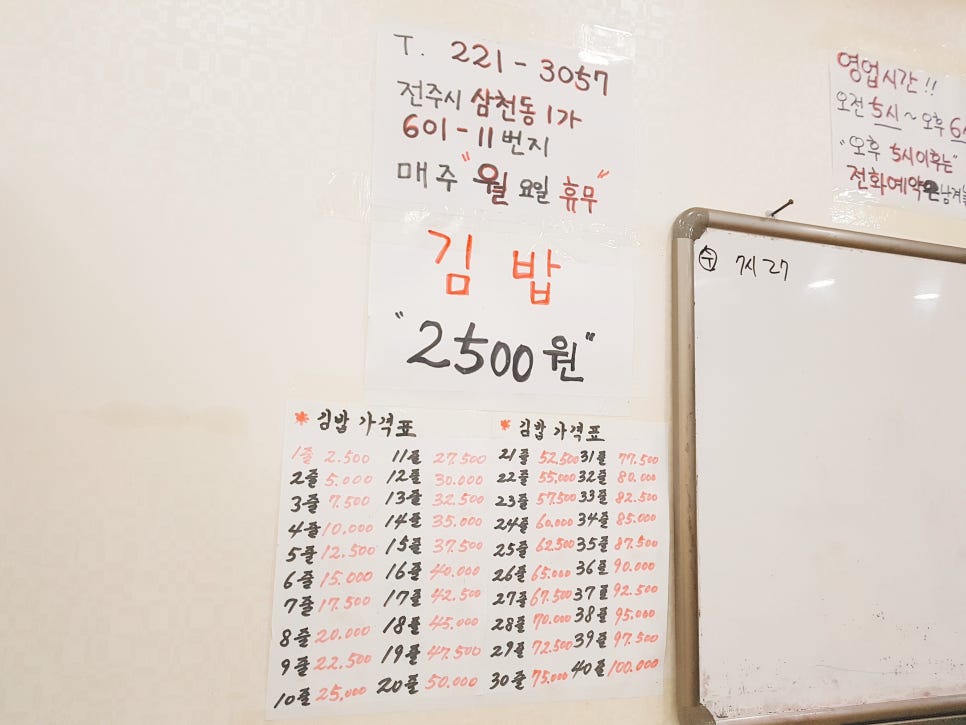 T. 221-3057
전주시 삼천동 1가
601-11번지
매주 "월요일 휴무"
김밥
"2500원"
영업시간!!
오전 5시~오후 6시
"오후 5시이후는"
전화예약은 남겨
㊌ 7시 27
* 김밥 가격표
1줄 2.500 11줄 27.500
2줄 5.000 12줄 30.000
3줄 7.500 13줄 32.500
4줄 10.000 14줄 35.000
5줄 12.500 15줄 37.500
6줄 15.000 16줄 40.000
7줄 17.500 17줄 42.500
8줄 20.000 18줄 45.000
9줄 22.500 19줄 47.500
10줄 25.000 20줄 50.000
* 김밥 가격표
21줄 52.500 31줄 77.500
22줄 55.000 32줄 80.000
23줄 57.500 33줄 82.500
24줄 60.000 34줄 85.000
25줄 62.500 35줄 87.500
26줄 65.000 36줄 90.000
27줄 67.500 37줄 92.500
28줄 70.000 38줄 95.000
29줄 72.500 39줄 97.500
30줄 75.000 40줄 100.000